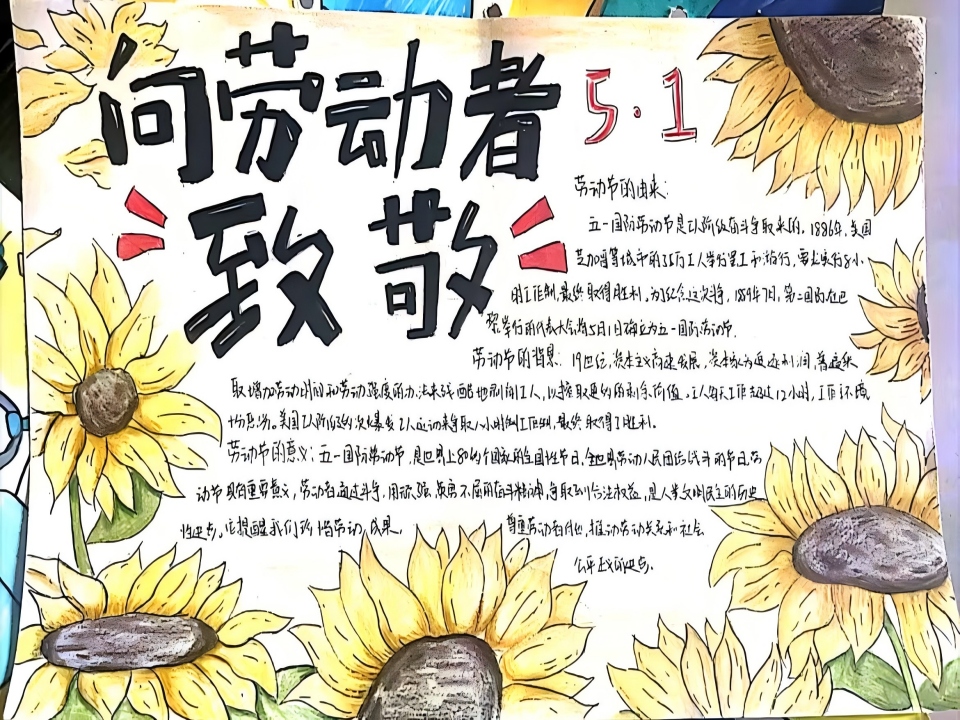 向劳动者
致敬
5.1
劳动节的由来:
五一国际劳动节是工人阶级奋斗争取来的, 1886年, 美国
芝加哥等城市的35万工人举行罢工和游行, 要求实行8小
时工作制, 最终取得胜利, 为了纪念这次, 189年7月, 第二国际在巴
黎举行的代表大会将5月1日确立为五一国际劳动节.
劳动节的背景: 19世纪, 资本主义高速发展, 资本家为追逐利润, 普遍采
取增加劳动时间和劳动强度的办法来残酷地剥削工人, 以榨取更多的剩余价值。工人每天工作超过12小时, 工作环境
十分恶劣。美国工人阶级的次爆发工人运动来争取八小时制工作制, 最终取得了胜利。
劳动节的意义: 五一国际劳动节, 是世界上80多个国家的全国性节日, 全世界劳动人民团结战斗的节日, 劳
动节具有重要意义, 劳动者通过斗争, 用顽强, 不屈的奋斗精神, 争取到了合法权益, 是人类文明民主的历史
性进步。它提醒我们珍惜劳动, 成果, 尊重劳动者付出, 推动劳动关系和社会
公平正义的进步.